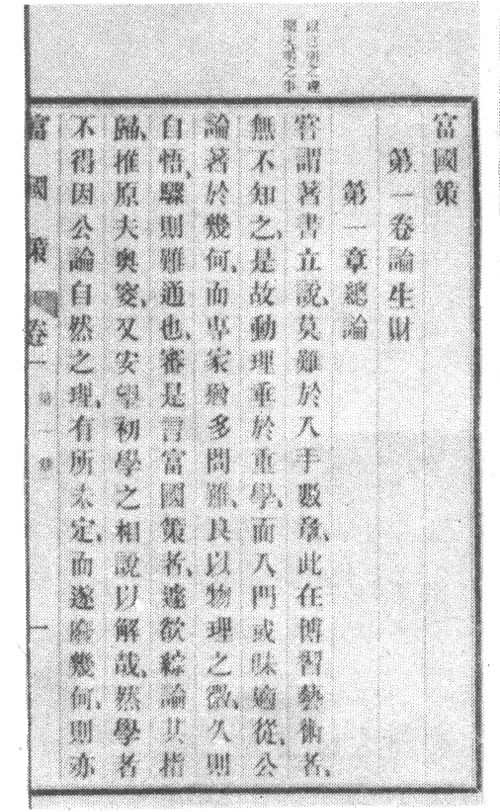 以已明之理
富國策
第一卷論生財
第一章總論
嘗謂著書立說、莫難於入手數章、此在博習藝術者、
無不知之、是故動理重於重學、而入門或昧適從、公
論著於幾何、而專家辯多問難、良以物理之微、久則
自悟、驟則難通也、審是言富國策者、遽欲綜論其指
歸、推原夫奧窔、又安望初學之相說以解哉、然學者
不得因公論自然之理、有所未定、而遂廢幾何、則亦
富國策 卷一 第一章 一